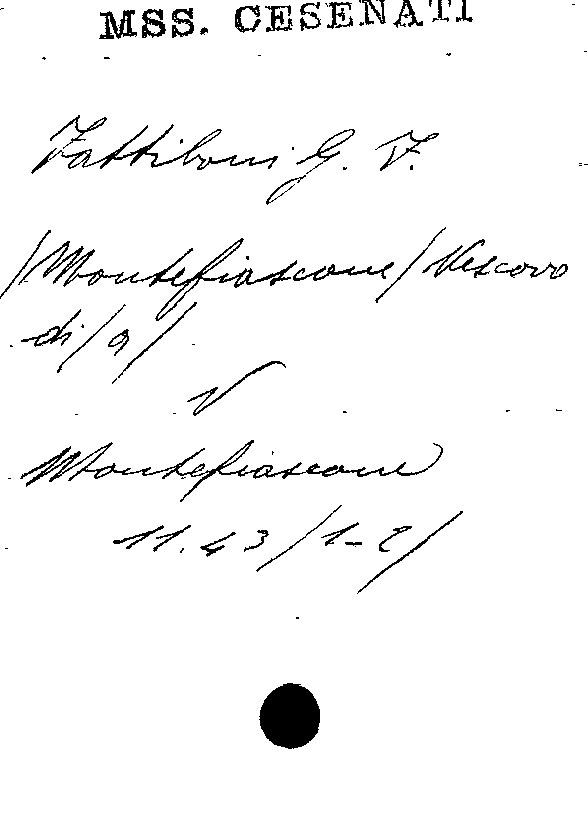 MSS. CESENATI
Fattiboni G. F.
/Montefiascone/Vescovo
di/a/
V
Montefiascone
11.43/1-2/